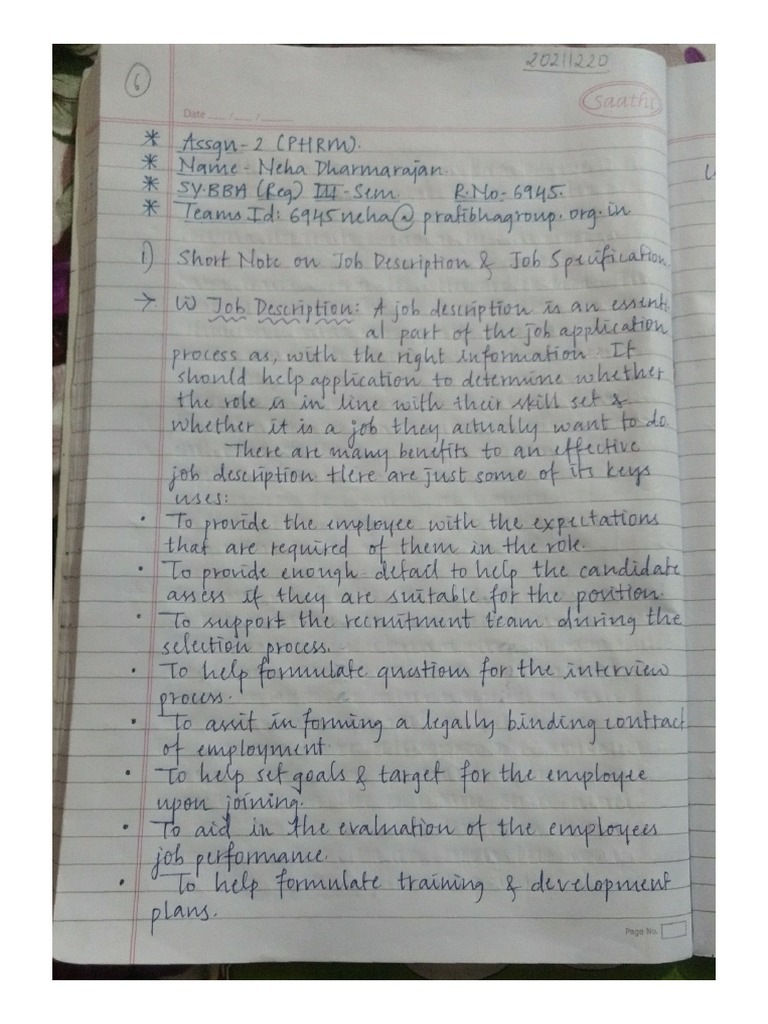 20211220
6
Saathi
Date ___/___/_____
* Assgn-2 (PHRM).
* Name - Neha Dharmarajan.
* SY.BBA (Reg) III-Sem R.No:- 6945.
* Teams Id: 6945neha@pratibhagroup.org.in
1) Short Note on Job Description & Job Specification
→ i) Job Description: A job description is an essenti-
al part of the job application
process as, with the right information. It
should help application to determine whether
the role is in line with their skill set &
whether it is a job they actually want to do.
There are many benefits to an effective
job description. Here are just some of its keys
uses:
• To provide the employee with the expectations
that are required of them in the role.
• To provide enough detail to help the candidate
assess if they are suitable for the position.
• To support the recruitment team during the
selection process.
• To help formulate questions for the interview
process.
• To assit in forming a legally binding contract
of employment.
• To help set goals & target for the employee
upon joining.
• To aid in the evaluation of the employees
job performance.
• To help formulate training & development
plans.
Page No.